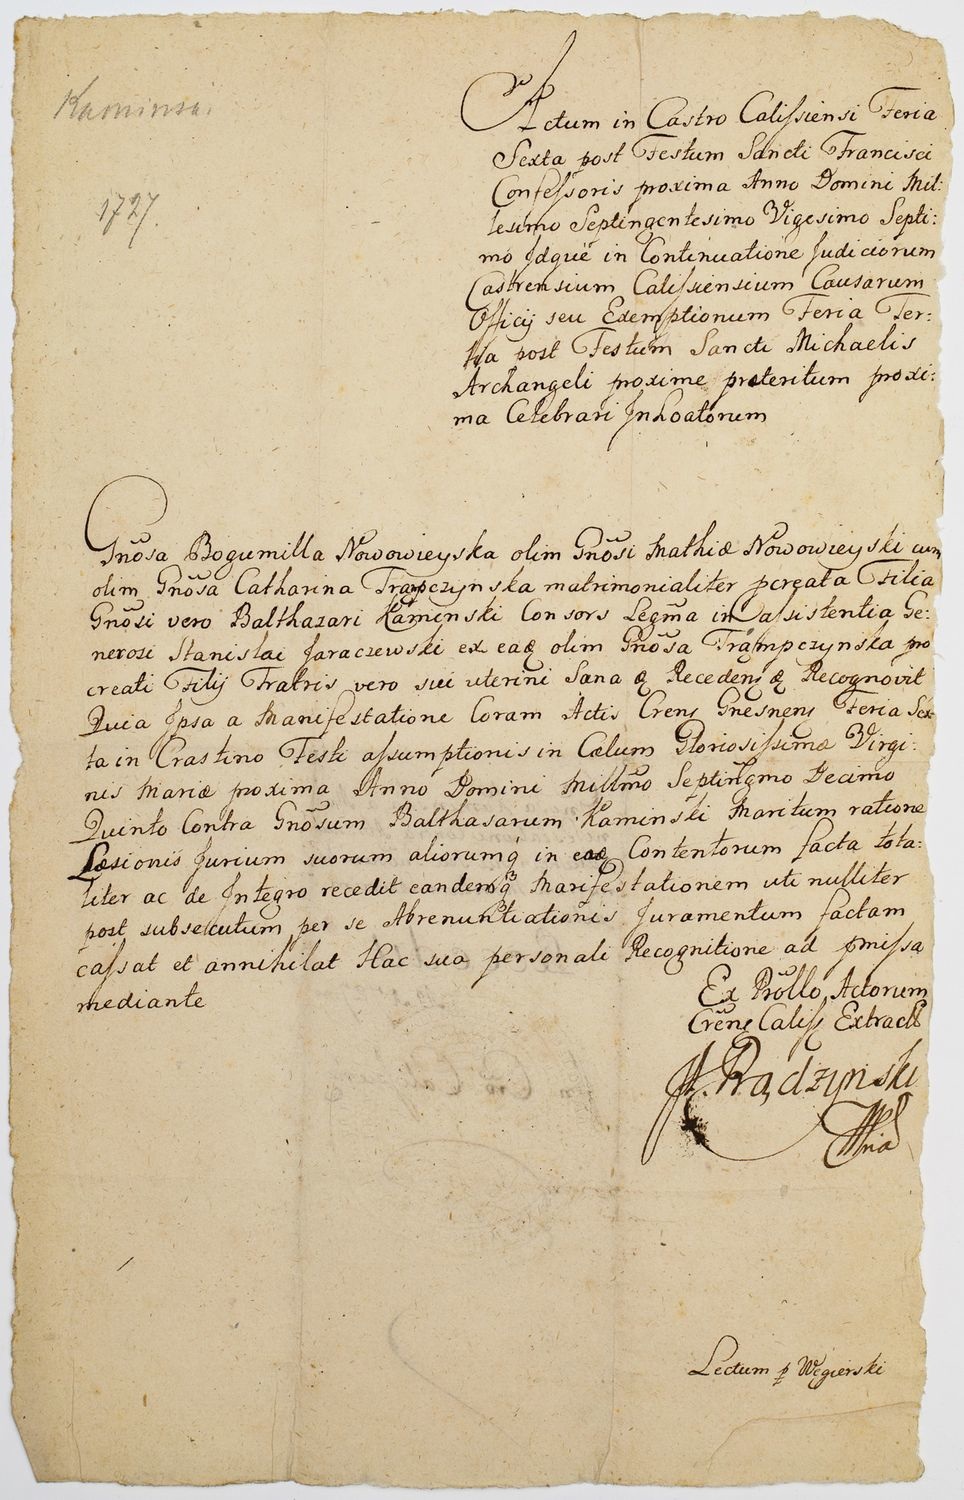 Kaminski
1727.
Actum in Castro Calissiensi Feria
Sexta post Festum Sancti Francisci
Confessoris proxima Anno Domini Mil:
lesimo Septingentesimo Vigesimo Septi:
mo Idquè in Continuatione Judiciorum
Castrensium Calissiensium Causarum
Officij seu Exemptionum Feria Ter:
tia post Festum Sancti Michaelis
Archangeli proxime præteritum proxi:
ma Celebrari Inhoatorum
Gnosa Bogumilla Nowowieyska olim Gnosi Mathiæ Nowowieyski cum
olim Gnosa Catharina Trąpczynska matrimonialiter pcreata Filia
Gnosi vero Balthazari Kaminski Consors Legma in Assistentia Ge:
nerosi Stanislai Jaraczewski ex eaq olim Gnosa Trąmpczynska pro
creati Filij Fratris vero sui uterini Sana q Recedens q Recognovit
Quia Ipsa a Manifestatione Coram Actis Crens Gnesnens Feria Sex
ta in Crastino Festi assumptionis in Cælum Gloriosissimæ Virgi:
nis Mariæ proxima Anno Domini Millmo Septingmo Decimo
Quinto Contra Gnosum Balthasarum Kaminski Maritum ratione
Læsionis Jurium suorum aliorumq in eaq Contentorum facta tota:
liter ac de Integro recedit eandemq Manifestationem uti nulliter
post subsecutum per se Abrenuntiationis Juramentum factam
cassat et annihilat Hac sua personali Recognitione ad pmissa
mediante
Ex Prollo Actorum
Crens Caliss Extract
Prądzynski
Lectum p Węgierski